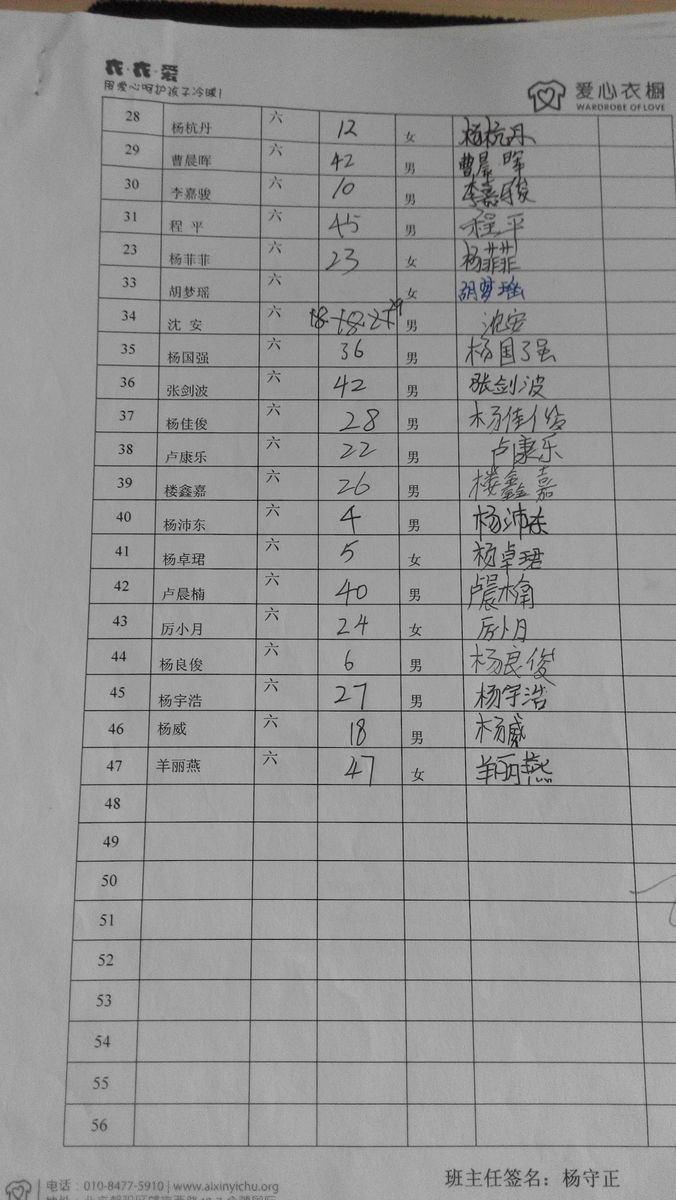 衣·衣·爱
用爱心呵护孩子冷暖!
爱心衣橱
WARDROBE OF LOVE
28 杨杭丹 六 12 女 杨杭丹
29 曹晨晖 六 42 男 曹晨晖
30 李嘉骏 六 10 男 李嘉骏
31 程 平 六 45 男 程平
23 杨菲菲 六 23 女 杨菲菲
33 胡梦瑶 六 女 胡梦瑶
34 沈 安 六 男 沈安
35 杨国强 六 36 男 杨国强
36 张剑波 六 42 男 张剑波
37 杨佳俊 六 28 男 杨佳俊
38 卢康乐 六 22 男 卢康乐
39 楼鑫嘉 六 26 男 楼鑫嘉
40 杨沛东 六 4 男 杨沛东
41 杨卓珺 六 5 女 杨卓珺
42 卢晨楠 六 40 男 卢晨楠
43 厉小月 六 24 女 厉小月
44 杨良俊 六 6 男 杨良俊
45 杨宇浩 六 27 男 杨宇浩
46 杨威 六 18 男 杨威
47 羊丽燕 六 47 女 羊丽燕
48
49
50
51
52
53
54
55
56
班主任签名：杨守正
电话：010-8477-5910 | www.aixinyichu.org